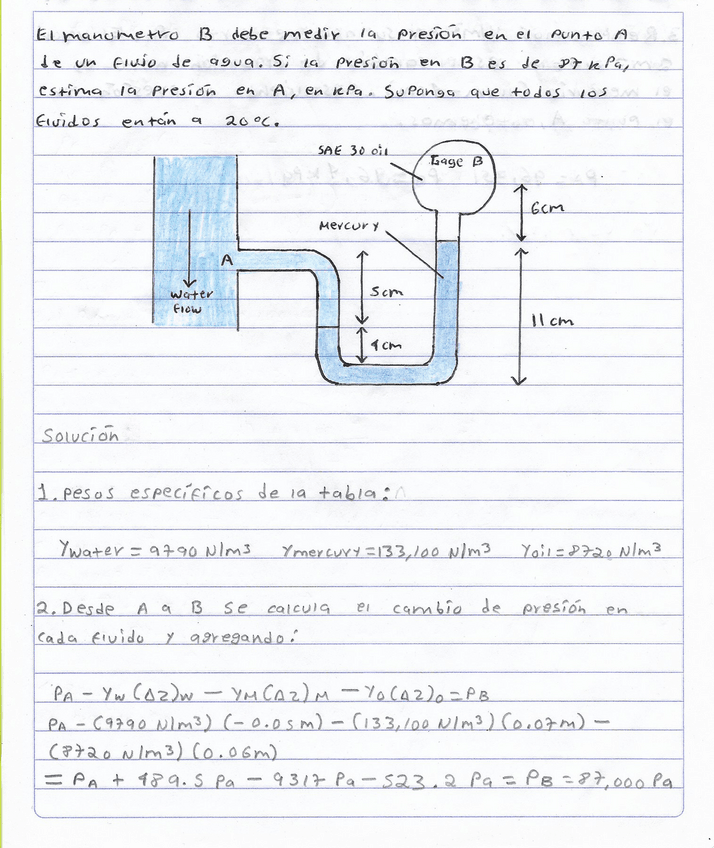 El manometro B debe medir la presión en el punto A
de un fluio de agua. Si la presion en B es de 87 kPa,
estima la presión en A, en kPa. Suponga que todos los
fluidos entán a 20°C.
SAE 30 oil
Gage B
6cm
Mercury
A
5cm
Water
flow
4cm
11 cm
Solución
1. pesos específicos de la tabla:
γwater = 9790 N/m3 γmercury = 133,100 N/m3 γoil = 8720 N/m3
2. Desde A a B se calcula el cambio de presión en
cada fluido y agregando:
PA - γw (Δz)w - γM (Δz) M - γo (Δz)o = PB
PA - (9790 N/m3) (-0.05m) - (133,100 N/m3) (0.07m) -
(8720 N/m3) (0.06m)
= PA + 489.5 Pa - 9317 Pa - 523.2 Pa = PB = 87,000 Pa